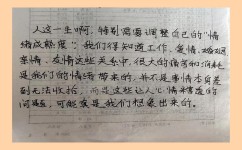 人这一生啊，特别需要调整自己的“情
绪成熟度”，我们得知道工作、爱情、婚姻
亲情、友情这些关系中，很大的痛苦和消耗
是我们的情绪带来的，并不是事情本身差
到无法收拾，而是这些让人心情难受的
问题，可能家是我们想象出来的。